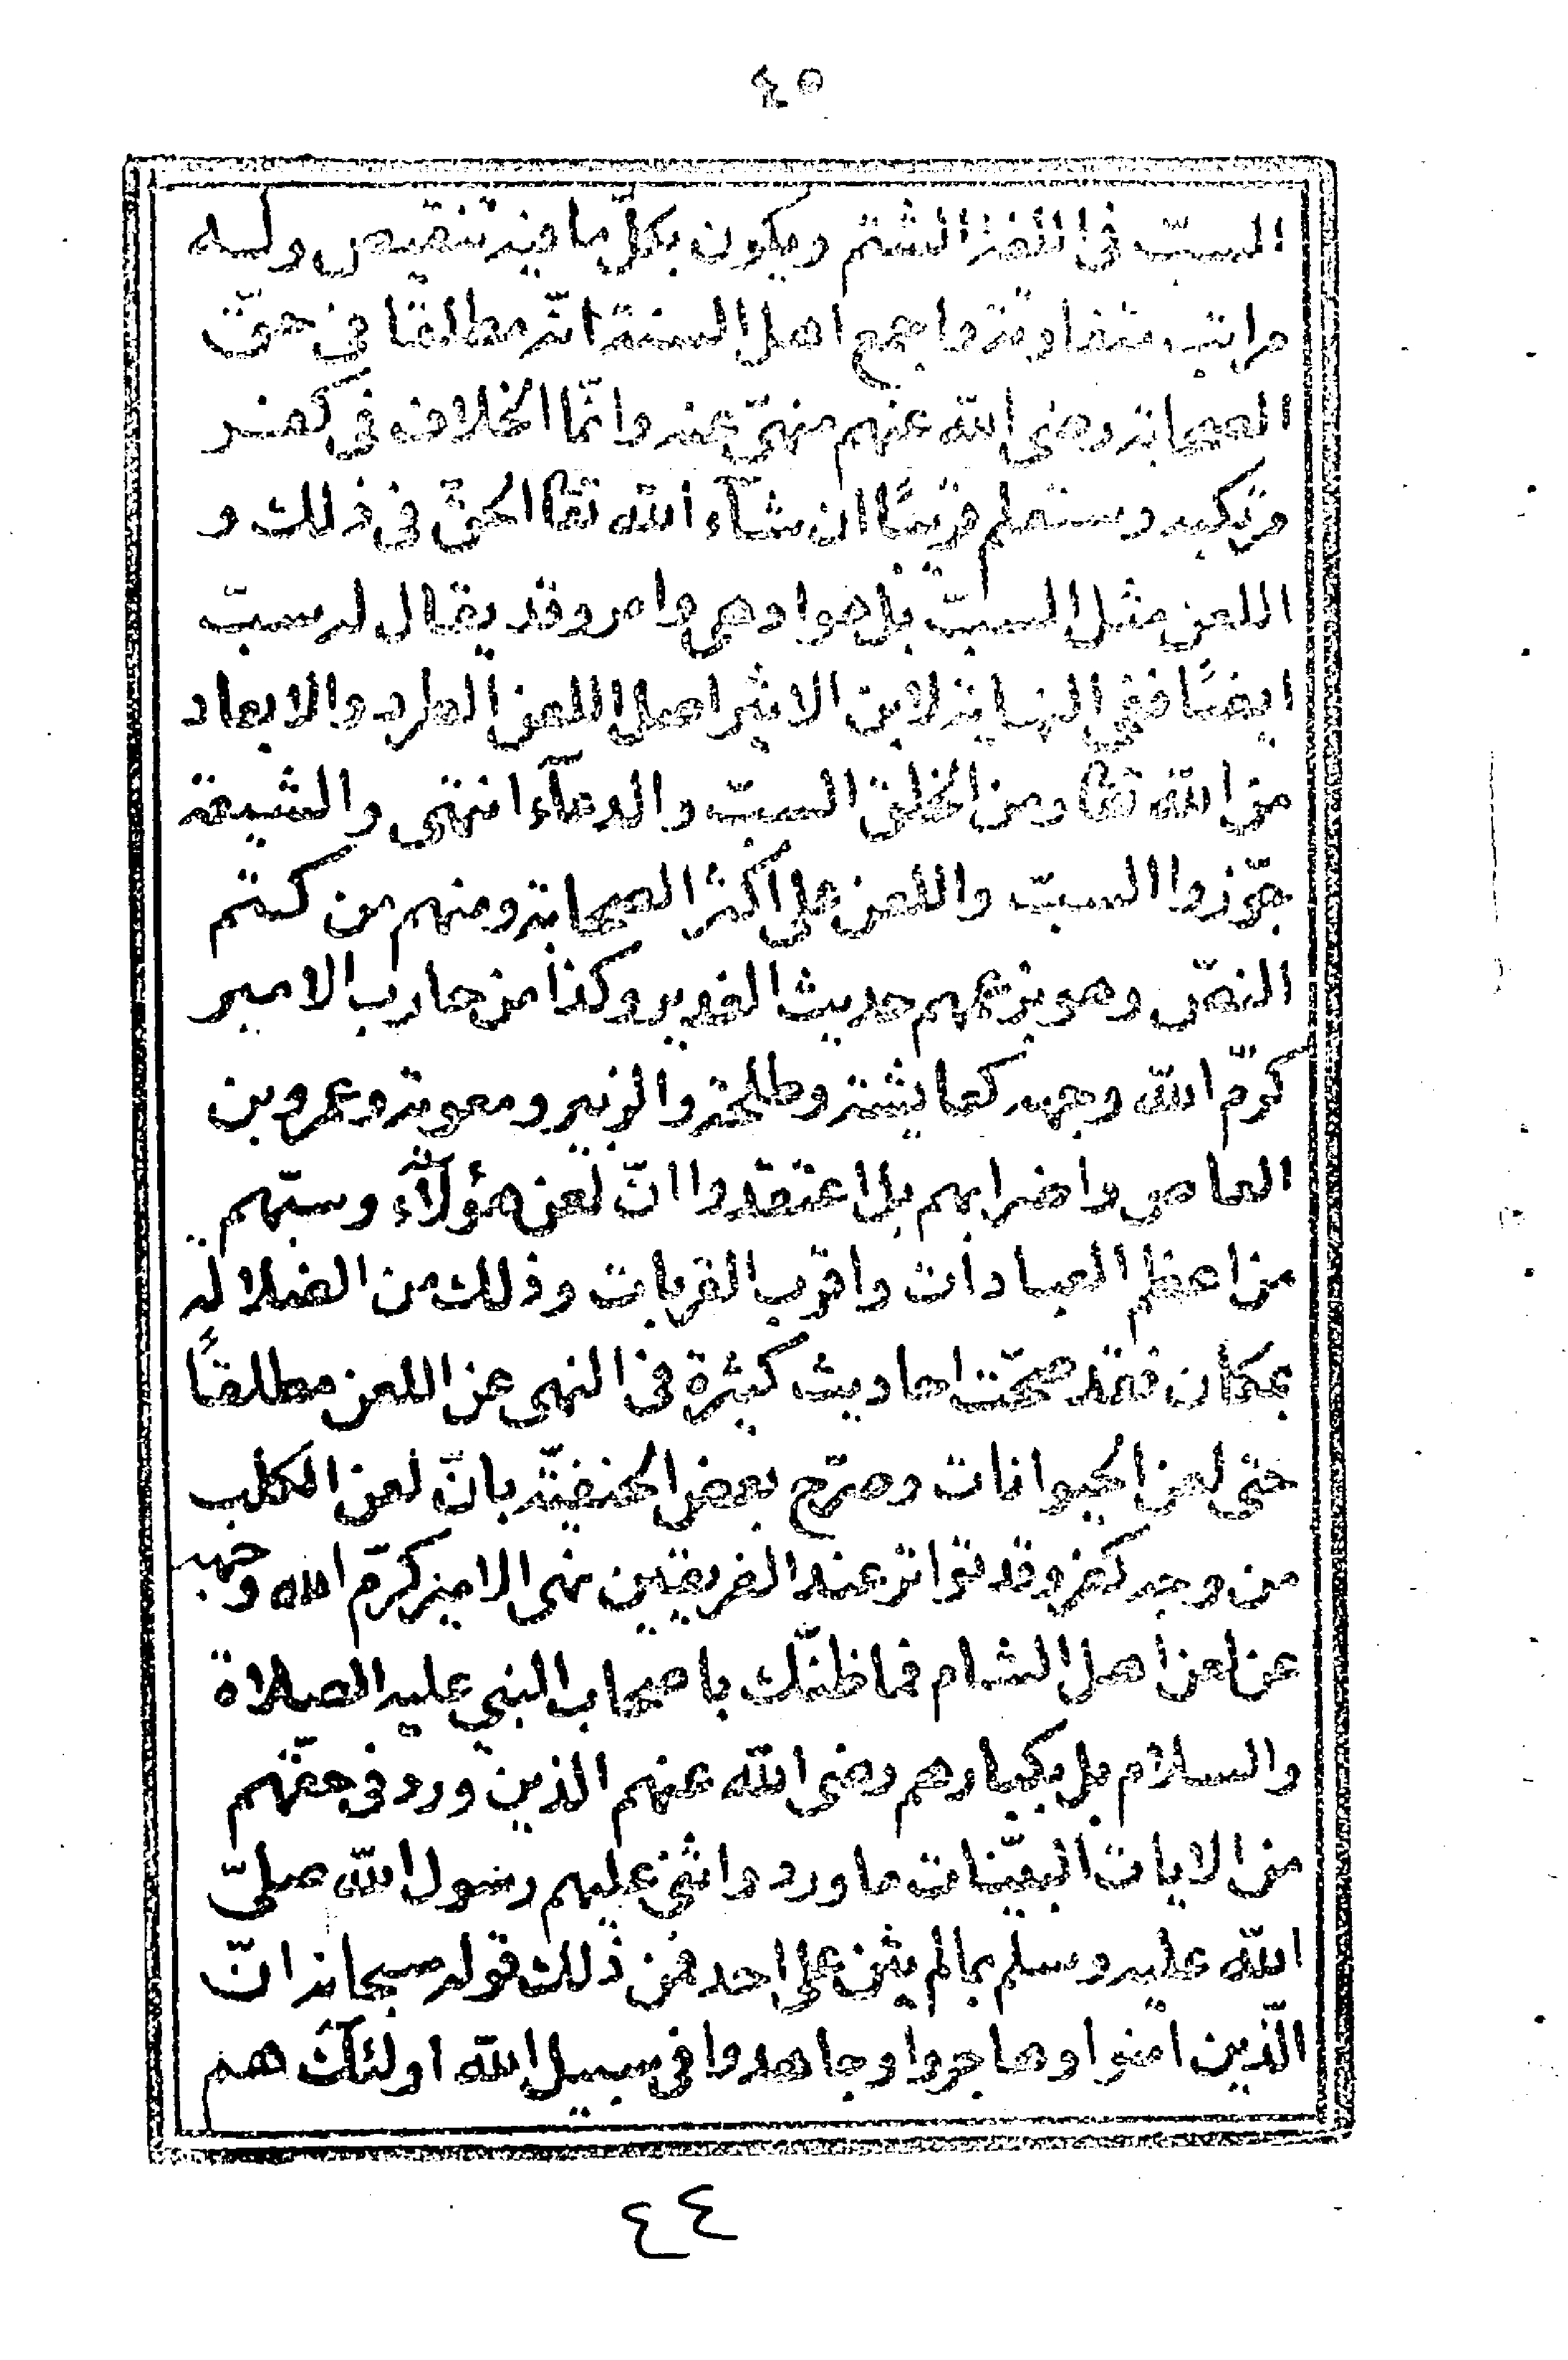 ٤٥
السبّ فى اللغة الشتم ويكون بكلّ ما فيه تنقيص وله
مراتب متفاوتة واجمع اهل السنة انّه مطلقا فى حقّ
الصحابة رضى الله عنهم منهىّ عنه وانّما الخلاف فى كفر
مرتكبه وستعلم قريبًا ان شآء الله تعا الحقّ فى ذلك و
اللعن مثل السبّ بل هو ادهى وامر وقد يقال له سبّ
ايضًا ففى النهاية لابن الاثير اصل اللعن الطرد والابعاد
من الله تعا ومن الخلق السبّ والدعآء انتهى والشيعة
جوّزوا السبّ واللعن على اكثر الصحابة ومنهم من كتم
النصّ وهو بزعمهم حديث الغدير وكذا من حارب الامير
كرّم الله وجهه كعايشة وطلحة والزبير ومعوية وعمرو بن
العاص واضرابهم بل اعتقدوا انّ لعن هؤلآء وسبّهم
من اعظم العبادات واقرب القربات وذلك من الضلالة
بمكان فقد صحّت احاديث كثيرة فى النهى عن اللعن مطلقًا
حتى لعن الحيوانات وصرّح بعض الحنفيّة بانّ لعن الكلب
من وجه كفر وقد تواتر عند الفريقين نهى الامير كرّم الله وجهه
عن لعن اهل الشام فما ظنّك باصحاب النبى عليه الصلاة
والسلام بل بكبارهم رضى الله عنهم الذين ورد فى حقّهم
من الايات البيّنات ما ورد واثنى عليهم رسول الله صلىّ
الله عليه وسلم بما لم يثن على احد فمن ذلك قوله سبحانه انّ
الّذين امنوا وهاجروا وجاهدوا فى سبيل الله اولئك هم
٤٤